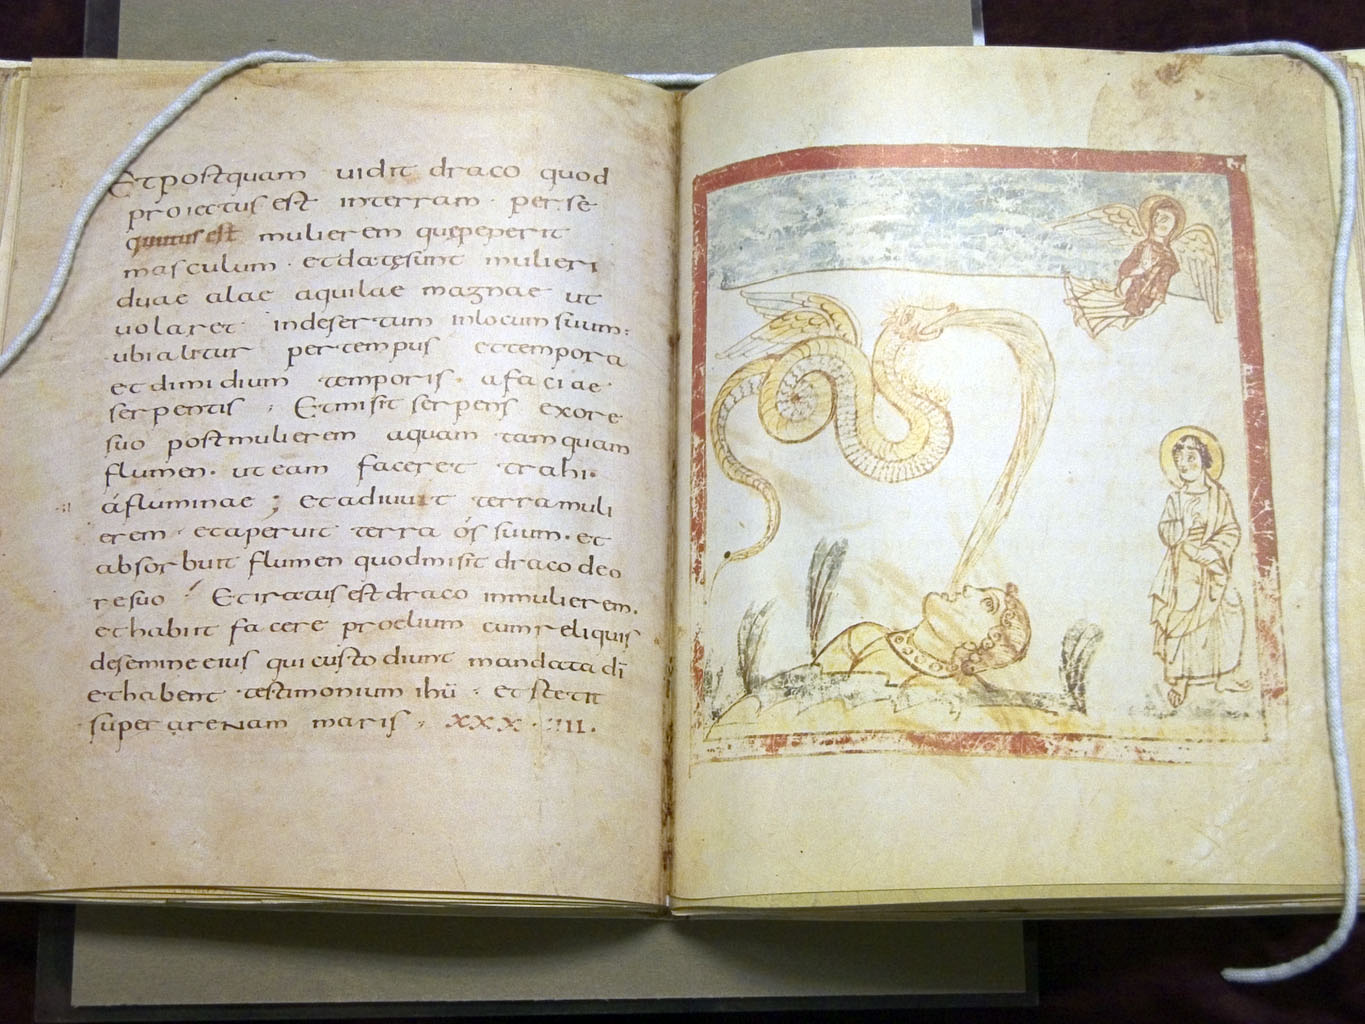 Et postquam uidit draco quod
proiectus est interram · perse
qutus est mulierem quępeperit
masculum · etdatęsunt mulieri
duae alae aquilae magnae ut
uolaret indesertum inlocum suum:
ubi alitur per tempus ettempora
etdimidium temporis · afaciae
serpentis ; Etmisit serpens exore
suo postmulierem aquam tamquam
flumen · ut eam faceret trahi ·
áfluminae ; etadiuuit terra muli
erem · etaperuit terra ós suum · et
absorbuit flumen quodmisit draco deo
resuo Etiratus est draco inmulierem.
ethabiit facere proelium cum reliquis
desemineeius qui custodiunt mandata dī
ethabent · testimonium ihū · et stetit
super arenam maris ; XXX